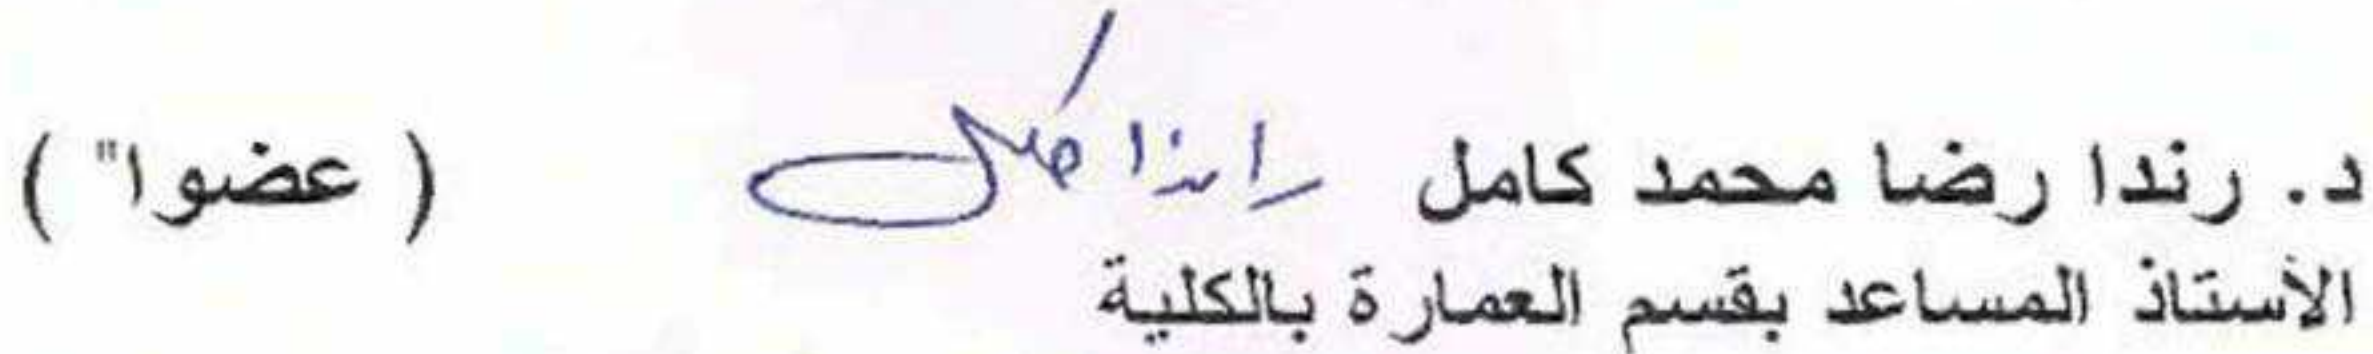 د. رندا رضا محمد كامل راندا كامل ( عضوا" )
الأستاذ المساعد بقسم العمارة بالكلية